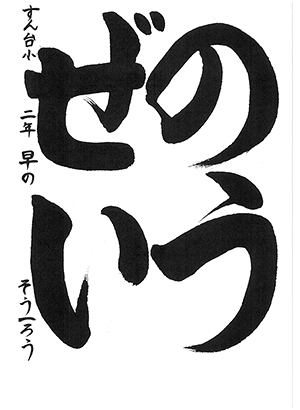 のう
ぜい
すん台小 二年 早の そう一ろう